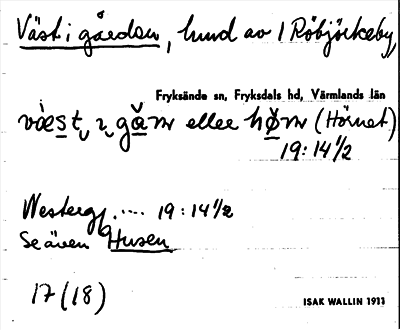 Väst i gården, hmd av 1 Röbjörkeby,
Fryksände sn, Fryksdals hd, Värmlands län
eller (Hörnet)
19:14 1/2
Westerg. .... 19:14 1/2
Se även Husen
17 (18)
ISAK WALLIN 1933